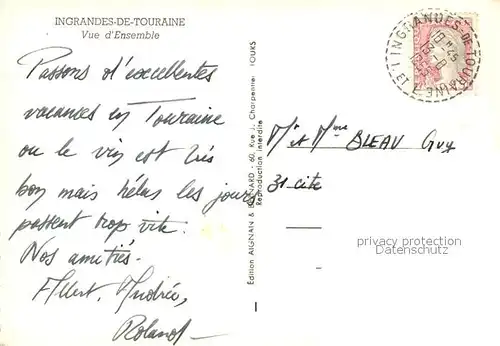 INGRANDES-DE-TOURAINE
Vue d'Ensemble
Passons d'excellentes
vacances en Touraine
ou le vin est très
bon mais hélas les jours
passent trop vite.
Nos amitiés.
Albert, Andrée,
Roland
Edition AIGNAN & BERNARD - 60, Rue J. Charpentier TOURS
Reproduction interdite
INGRANDES-DE-TOURAINE
Mr et Mme BLEAU Guy
31 cité
privacy protection
Datenschutz